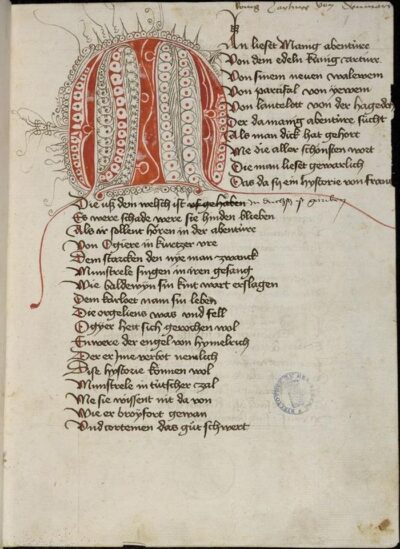 Man lieset Manig abentúre
Von dem edeln kúnig arture
Von sinem neuen walewem
Von parcifal von yewem
Von lantzelott von der hageden
Der da manig abentúre sücht
Als man dick hat gehort
Me die aller schönsten wort
Die man lieset gewarlich
Das da sy ein hystorie von
Die uß dem welsch ist uf gehaben
Es were schade were sie hinden blieben
Als ir sollent hören in der abentúre
Von Ogiere in kurtzer vre
Dem starcken den nye man zwanck
Munstrele singen in iren gesang
Wie baldewyn sin kint wart erslagen
Dem karloet nam sin leben
Die orgeliens was vnd fell
Ogyer hett sich gerochen wol
Enwere der engel von hymelrich
Der er Jme verbot nemlich
Dise hystorie können wol
Munstrele in tútscher zal
Me sie wissent nit da von
Wie er broyfort gewan
Vnd cortemen das güt schwert